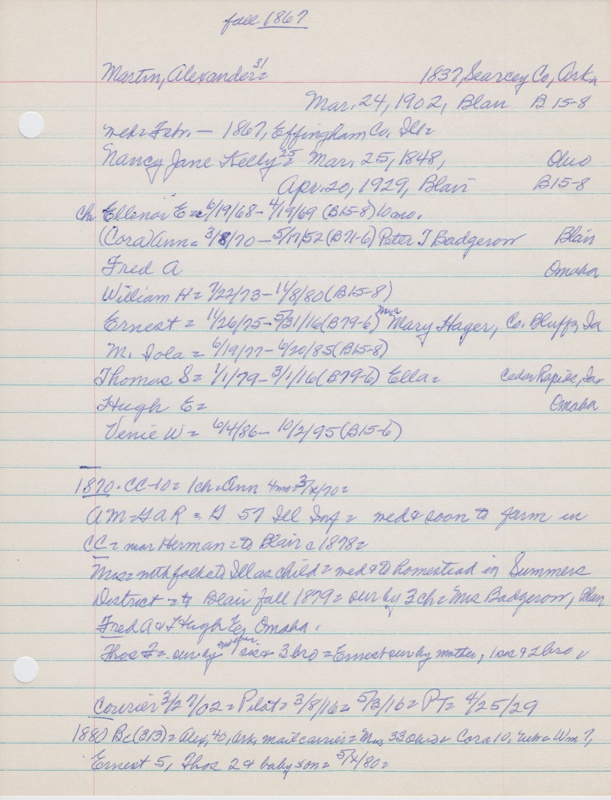 fall 1867
Martin, Alexander = 31 1837, Searcey Co, Ark
Mar. 24, 1902, Blair B15-8
med = Febr - 1867, Effingham Co, Ill =
Nancy Jane Kelly = 25 Mar. 25, 1848, Ohio
Apr. 20, 1929, Blair B15-8
ch Ellenor E = 6/19/68 - 4/19/69 (B15-8) 10 mo.
(Cora) Ann = 3/8/70 - 5/17/52 (B71-6) Peter T Badgerow Blair
Fred A Omaha
William H = 7/22/73 - 11/8/80 (B15-8)
Ernest = 1/26/75 - 5/31/16 (B79-6) Mrs Mary Hager, Co. Bluffs, Ia
M. Iola = 6/19/77 - 6/20/85 (B15-8)
Thomas S = 1/1/79 - 3/1/16 (B79-6) Ella = Cedar Rapids, Ia
Hugh E = Omaha
Venie W = 6/4/86 - 10/2/95 (B15-6)
1870 - CC-10 = 1 ch. Ann 4 mo = 3/x/70 =
AM = GAR = H 57 Ill Inf = med & soon to farm in
CC = near Herman = to Blair c 1878 =
Mrs = with folks to Ill as child = med & to Homestead in Summers
District = to Blair fall 1879 = sur by 3 ch = Mrs Badgerow, Blair
Fred A & Hugh E, Omaha.
Thos = sur by 1 sis & 3 bro = Ernest sur by mother, 1 sis & 2 bro
Courier 3/27/02 = Pilot = 3/8/16 = 5/3/16 = PT = 4/25/29
1880 Bc (313) = Alex, 40, Ark, mail carrier = Mrs 33 Ohio = Cora 10, = Wm 7,
Ernest 5, Thos 2 & baby son = 5/x/80 =